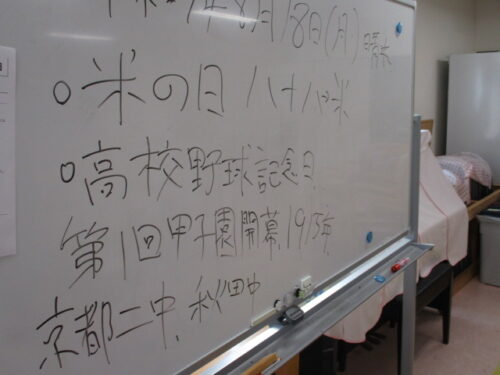 年8月18日(月)晴
○米の日 八十八→米
○高校野球記念日
第1回甲子園開幕、1915年
京都二中、秋田中